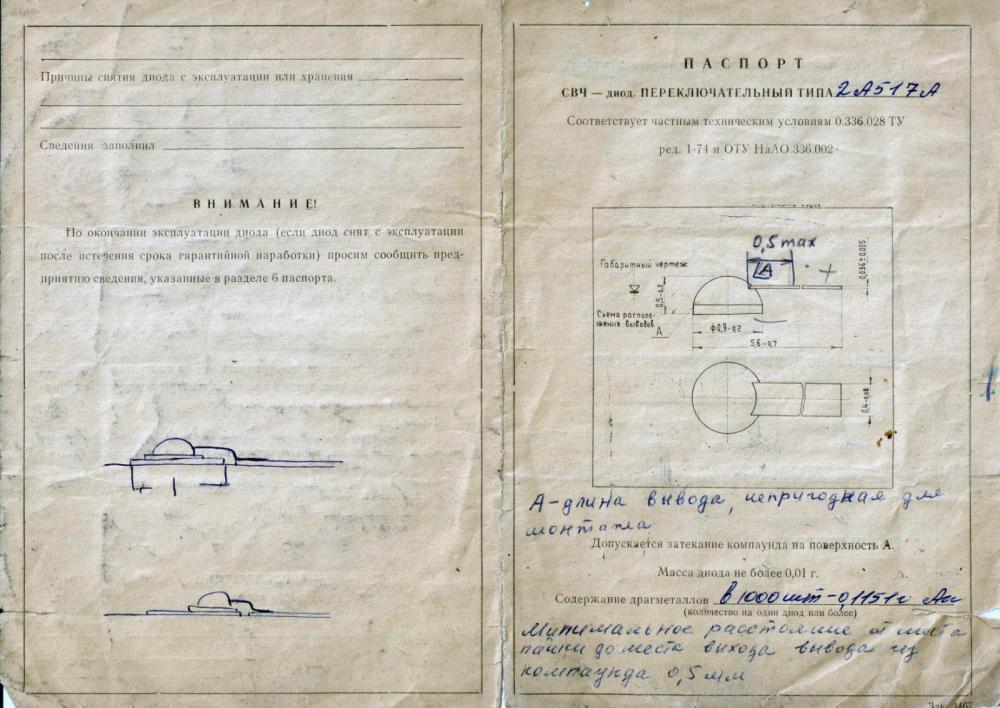 Причины снятия диода с эксплуатации или хранения
Сведения заполнил
ВНИМАНИЕ!
По окончании эксплуатации диода (если диод снят с эксплуатации
после истечения срока гарантийной наработки) просим сообщить пред-
приятию сведения, указанные в разделе 6 паспорта.
ПАСПОРТ
СВЧ — диод. ПЕРЕКЛЮЧАТЕЛЬНЫЙ ТИПА 2А517А
Соответствует частным техническим условиям 0.336.028 ТУ
ред. 1-74 и ОТУ НаАО.336.002
0,5 max
Габаритный чертеж
А
+
0,036±0,015
0,5-0,2
Схема располо-
жения выводов
А
ф0,9-0,2
5,6-0,7
0,4-0,08
А-длина вывода, непригодная для
монтажа
Допускается затекание компаунда на поверхность А.
Масса диода не более 0,01 г.
Содержание драгметаллов в 1000шт-0,1151г Au
(количество на один диод или более)
Минимальное расстояние от места
пайки до места выхода вывода из
компаунда 0,5 мм